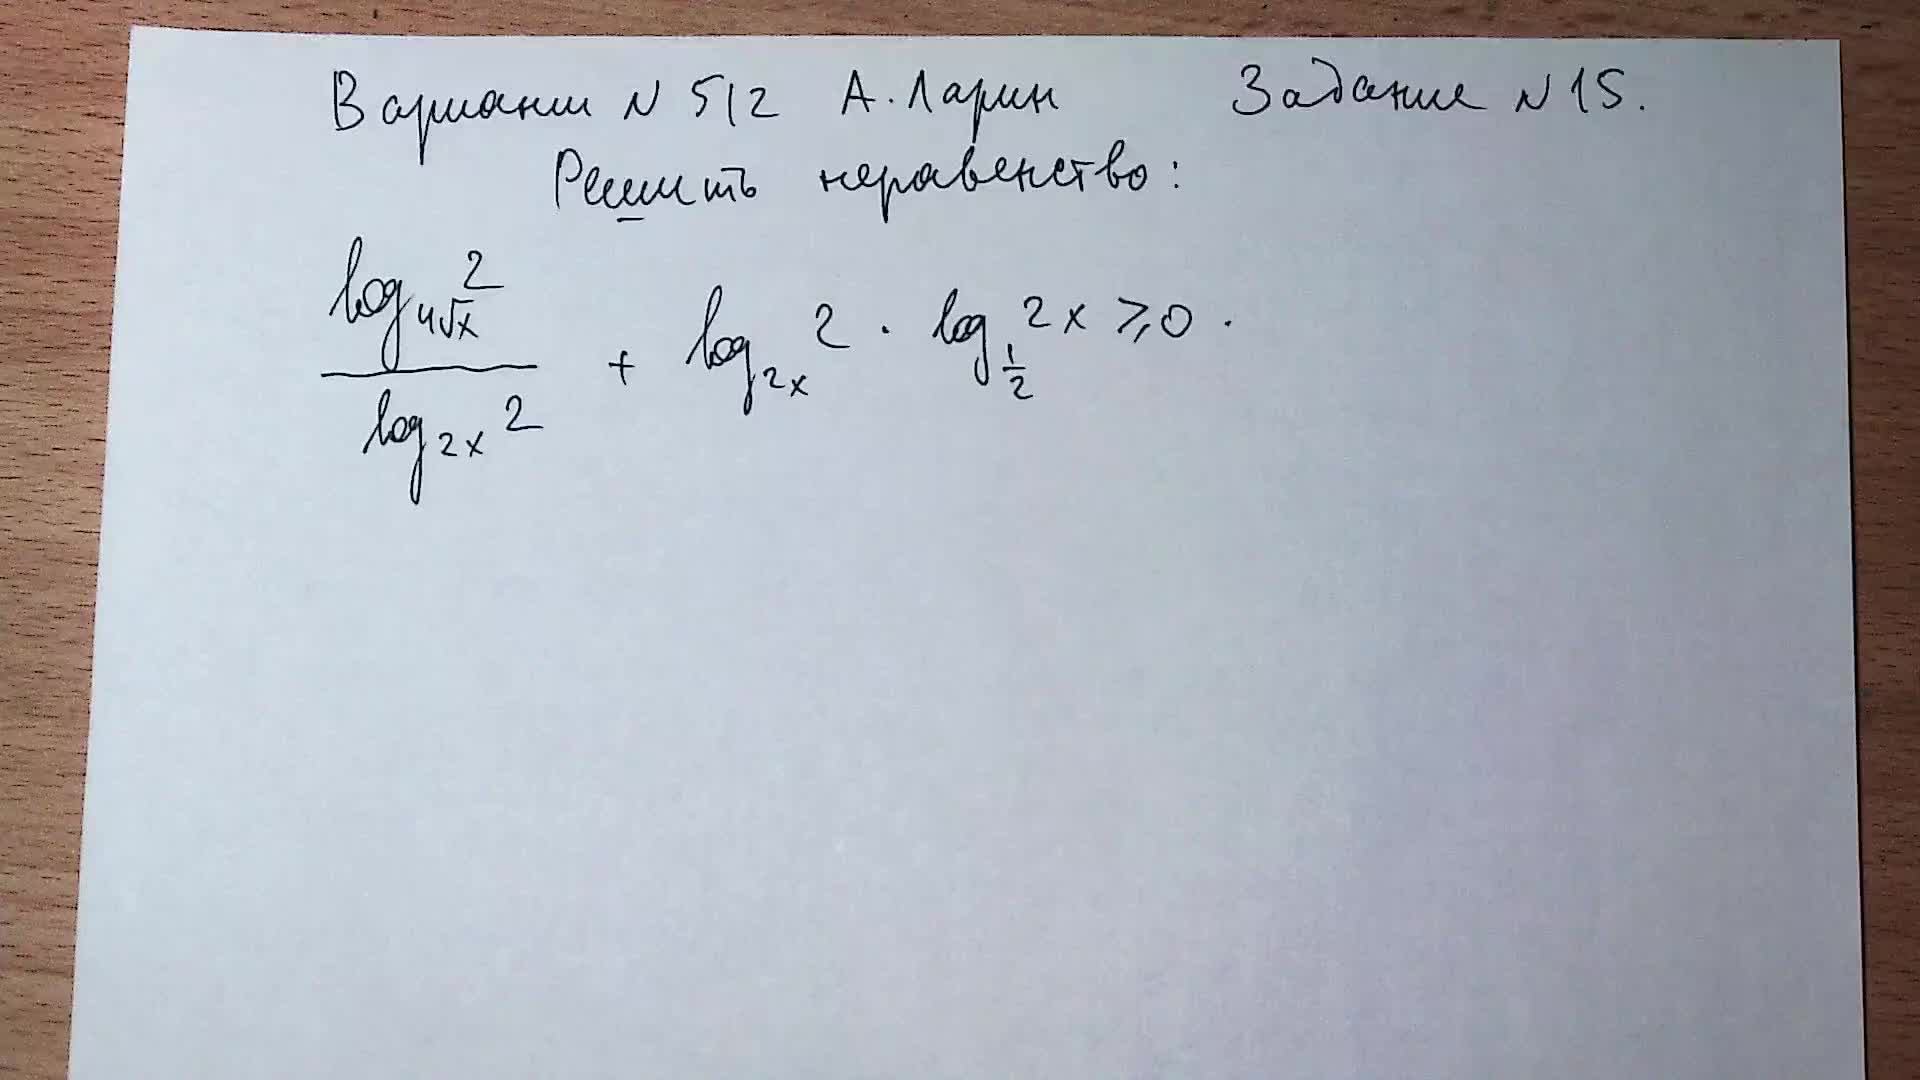 Вариант N 512 А. Ларин Задание N 15.
Решить неравенство:
log_{4√x} 2 / log_{2x} 2 + log_{2x} 2 · log_{1/2} 2x ⩾ 0.